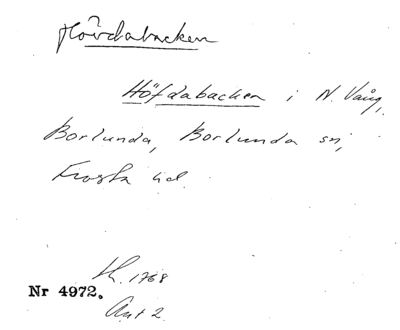 Hövdabacken
Höfdabacken i N. Vång,
Borlunda, Borlunda sn,
Frosta hd.
1768
Nr 4972.
Akt 2